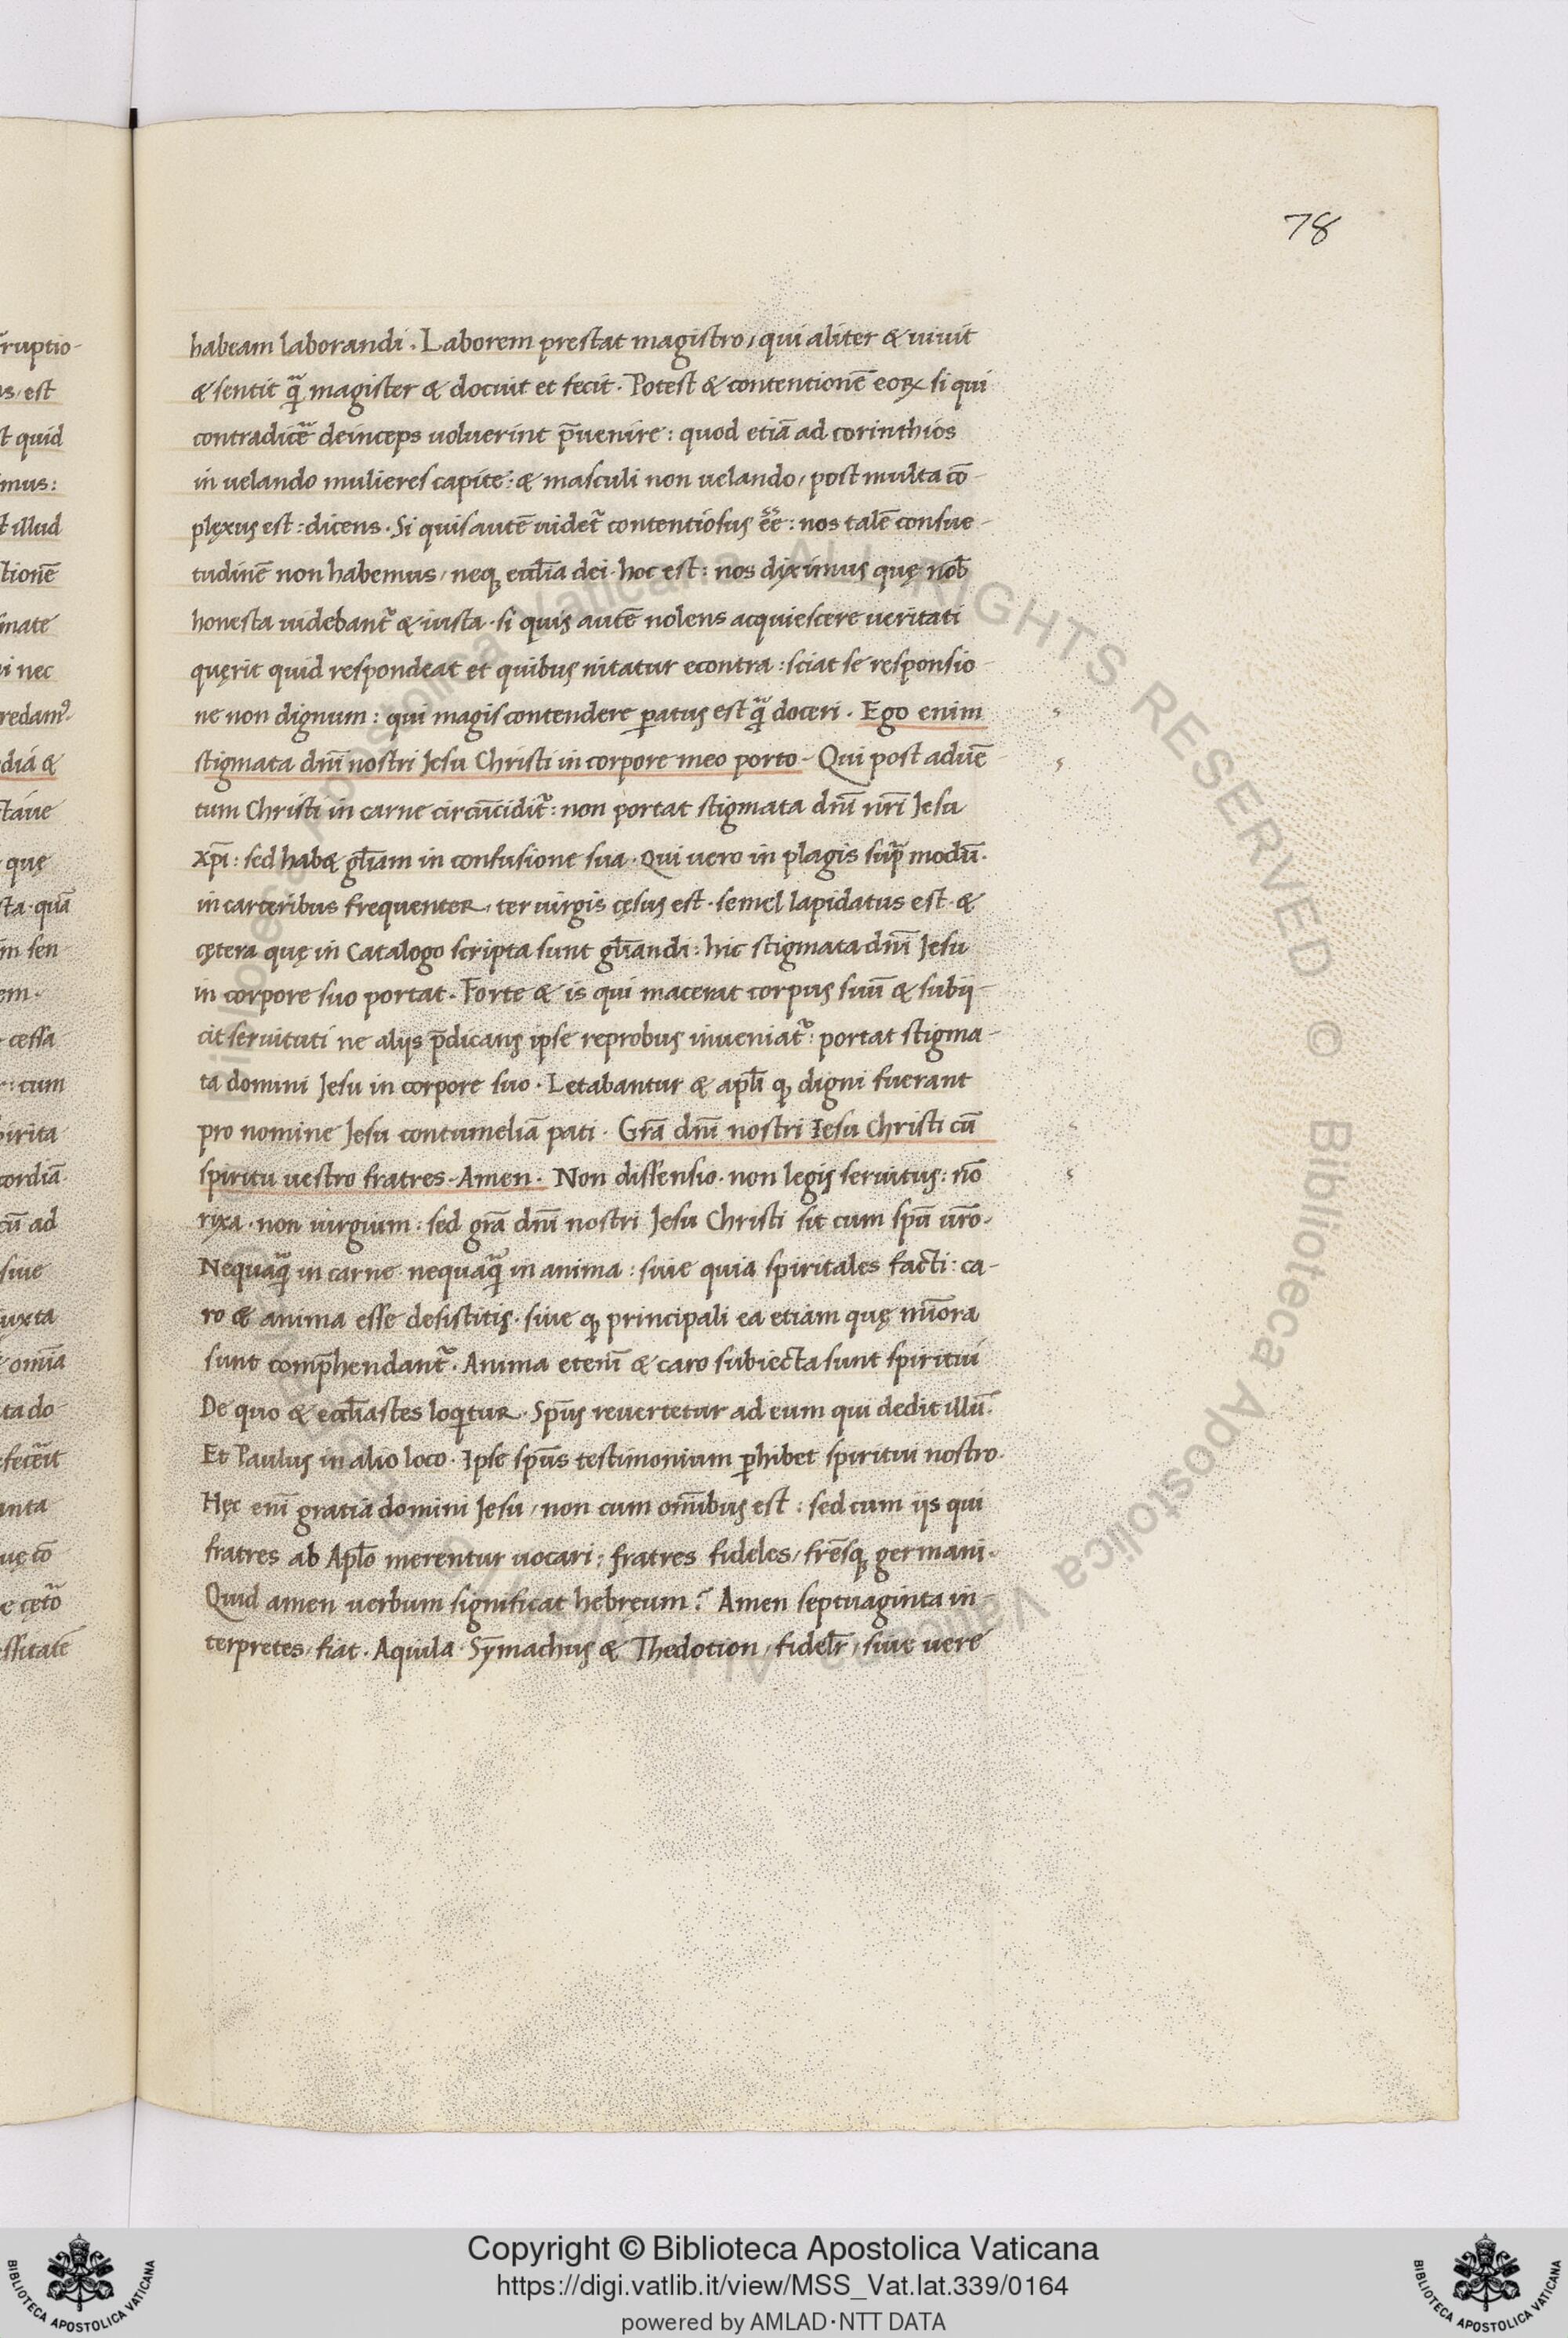 78
habeam laborandi. Laborem prestat magistro, qui aliter & uiuit
& sentit q̃ magister & docuit et fecit. Potest & contentionē eoꝝ si qui
contradicẽ deinceps uoluerint p̄uenire: quod etiā ad corinthios
in uelando mulieres capite: & masculi non uelando, post multa cō-
plęxus est: dicens. Si quis autē uidet̃ contentiosus ēē: nos talē consue-
tudinē non habemus, neqꝫ eccl̄ia dei. hoc est: nos diximus quę nob̄
honesta uidebant̃ & iusta. si quis autē nolens acquiescere ueritati
quęrit quid respondeat et quibus nitatur econtra: sciat se responsio-
ne non dignum: qui magis contendere ꝑatus est q̃ doceri. Ego enim
stigmata dn̄i nostri Jesu Christi in corpore meo porto. Qui post aduē-
tum Christi in carne circūcidit̃: non portat stigmata dn̄i nr̄i Jesu
xp̄i: sed habet gl̄iam in confusione sua. Qui uero in plagis sup̃ modū.
in carceribus frequenter, ter uirgis cęsus est. semel lapidatus est. &
cętera quę in Catalogo scripta sunt gl̄iandi: hic stigmata dn̄i Jesu
in corpore suo portat. Forte & is qui macerat corpus suū & subij-
cit seruituti ne alijs p̄dicans ipse reprobus inueniat̃: portat stigma-
ta domini Jesu in corpore suo. Letabantur & apl̄i qꝫ digni fuerant
pro nomine Jesu contumeliā pati. Gr̄a dn̄i nostri Iesu Christi cū
spiritu uestro fratres. Amen. Non dissensio. non legis seruitus: nō
rixa. non iurgium: sed gr̄a dn̄i nostri Jesu Christi sit cum spū ur̄o.
Nequaq̃ in carne. nequaq̃ in anima: siue quia spiritales facti: ca-
ro & anima esse desistitis. siue qꝫ principali ea etiam quę mīora
sunt comp̄hendant̃. Anima etenī & caro subiecta sunt spiritui
De quo & eccl̄iastes loqͥtur. Sp̄us reuertetur ad eum qui dedit illū.
Et Paulus in alio loco. Ipse sp̄us testimonium ꝑhibet spiritui nostro.
Hęc enī gratia domini Jesu, non cum om̄ibus est: sed cum ijs qui
fratres ab Apl̄o merentur uocari: fratres fideles, fr̄esqꝫ germani.
Quid amen uerbum significat hebreum? Amen septuaginta in-
terpretes, fiat. Aquila. Sȳmachus & Thedotion, fidel̄r, siue uere
ruptio-
est
quid
mus:
illud
tionē
mate
nec
redamꝰ.
&
quę
quā
sen
em.
cessa
cum
cordiā.
cū ad
siue
iuxta
omīa
Copyright © Biblioteca Apostolica Vaticana
https://digi.vatlib.it/view/MSS_Vat.lat.339/0164
powered by AMLAD·NTT DATA
BIBLIOTECA APOSTOLICA VATICANA
BIBLIOTECA APOSTOLICA VATICANA